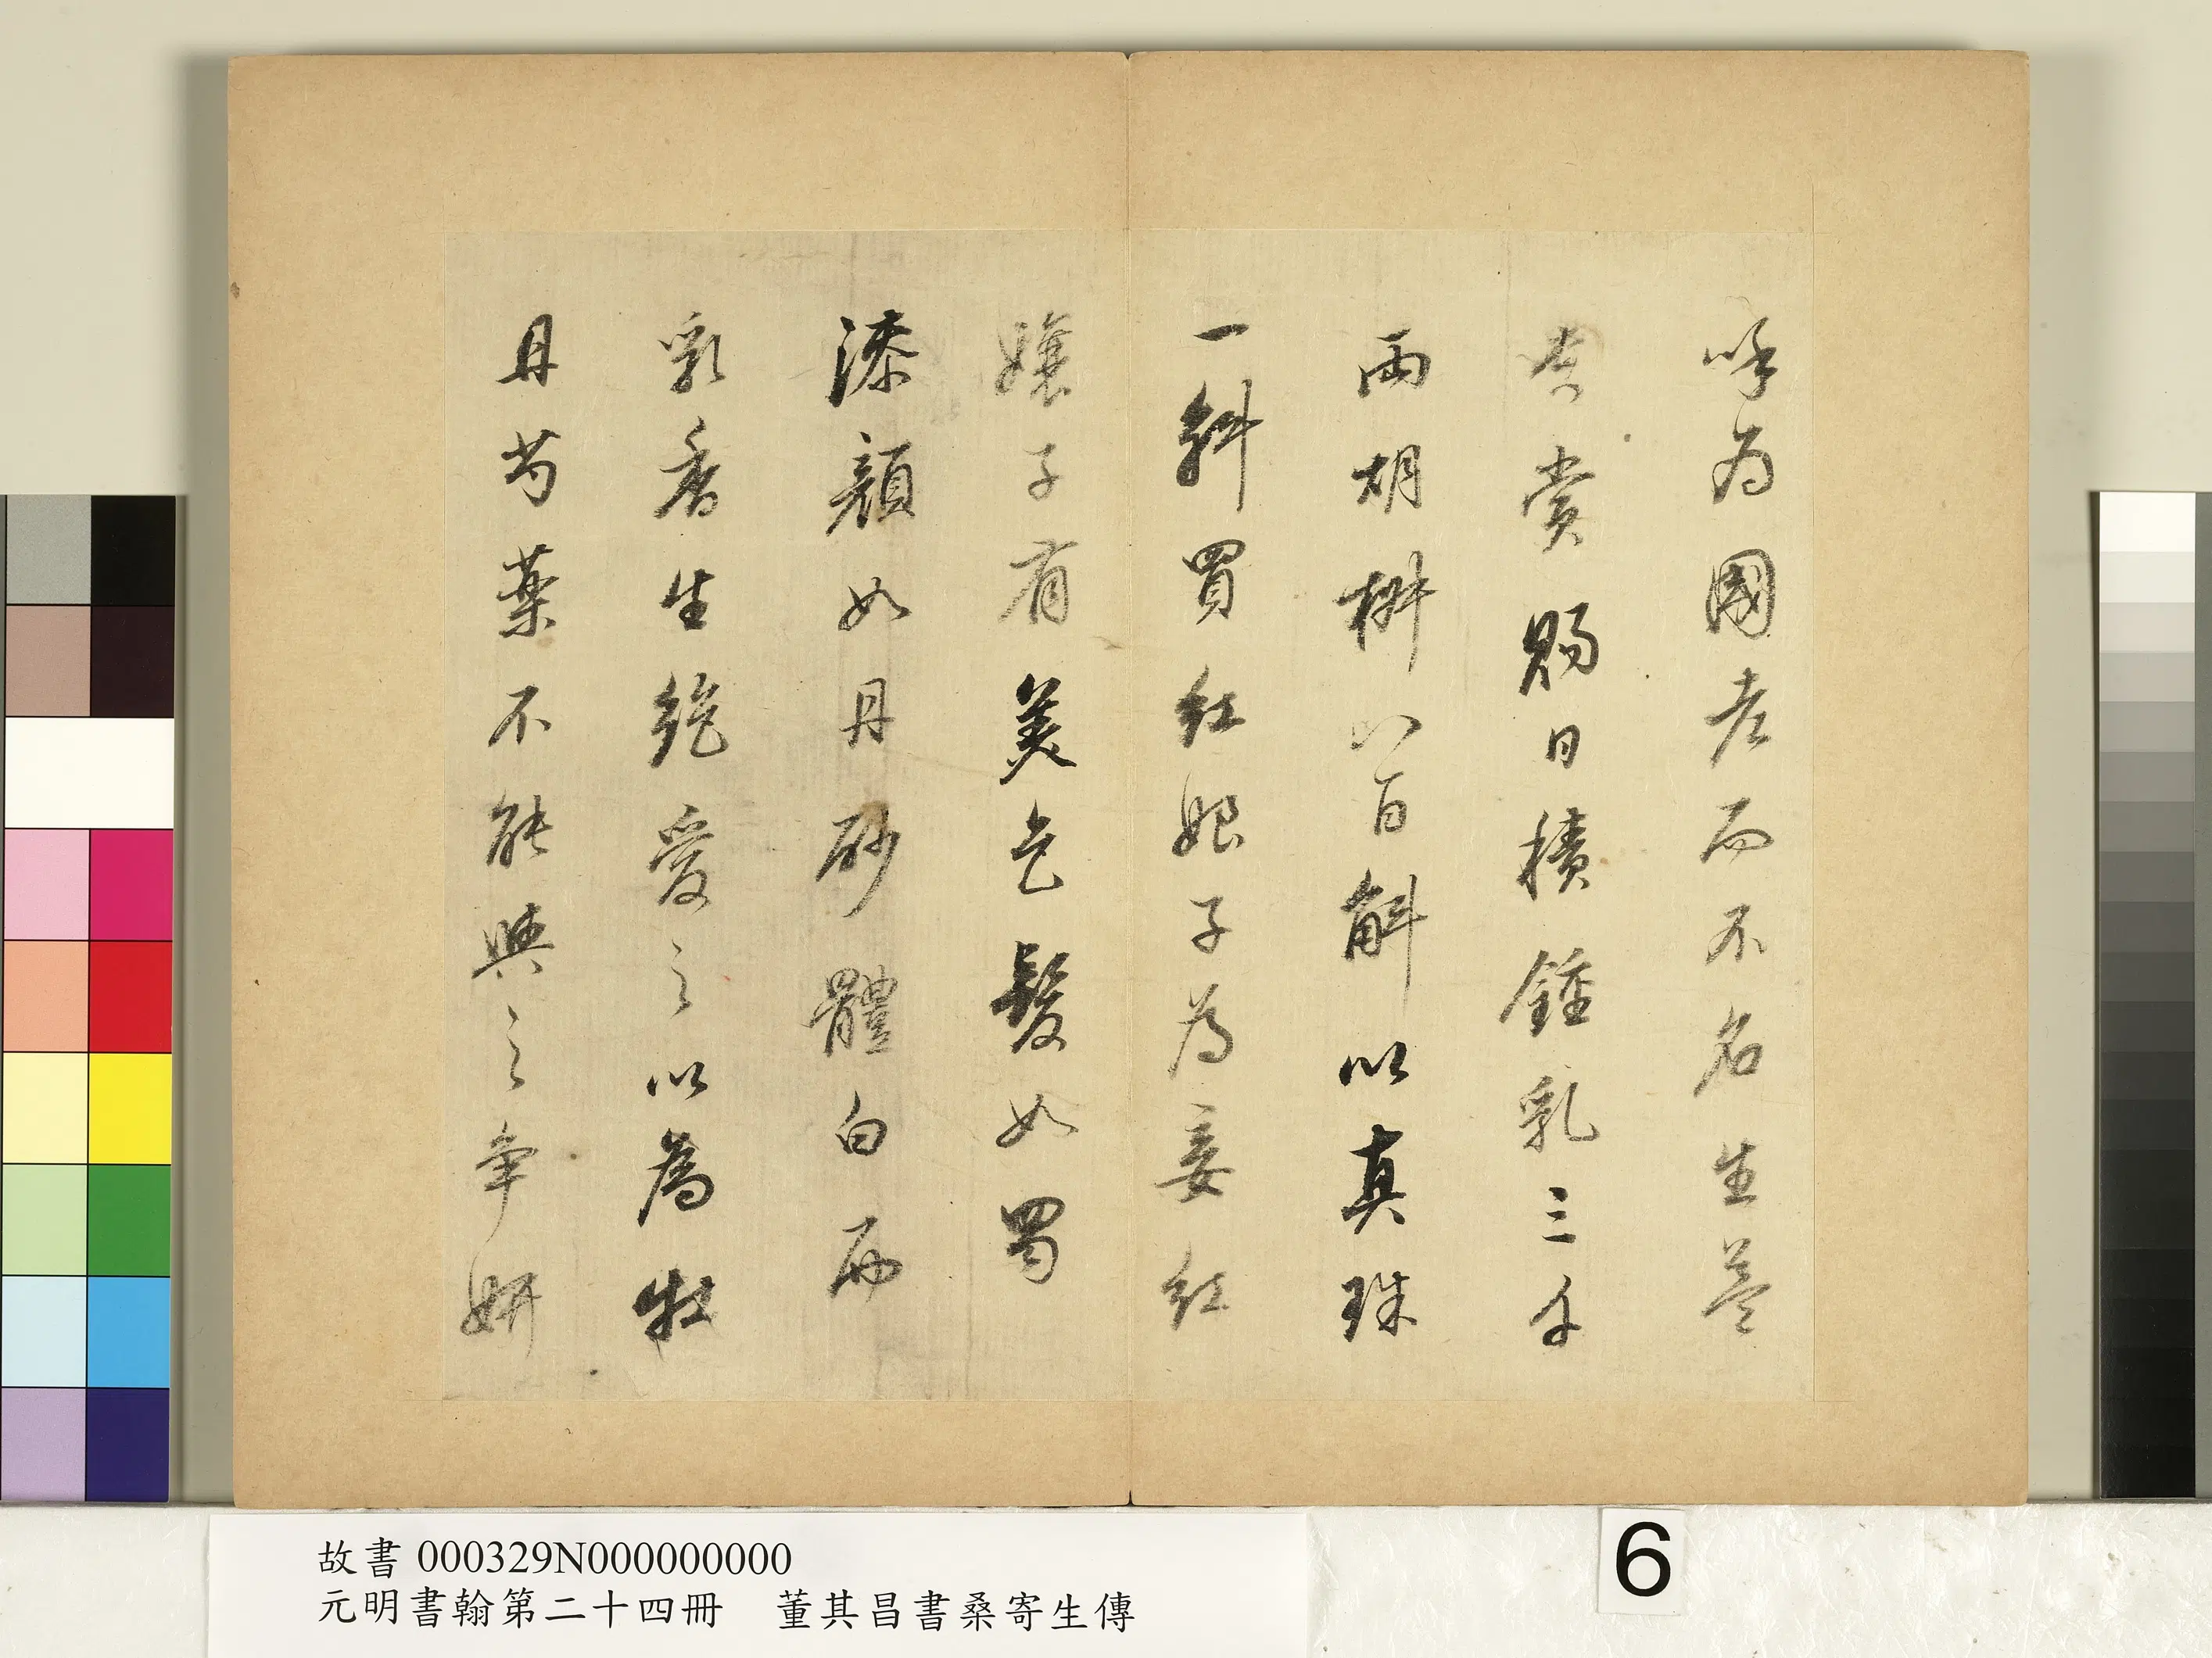 呼為國老而不名生益
貴賞賜日積鍾乳三千
兩胡椒八百斛以真珠
一斛買紅娘子為妾紅
孃子有美色髮如蜀
漆顏如丹砂體白而
乳香生絕愛之以為牡
丹芍藥不能與之爭妍
故書 000329N000000000
元明書翰第二十四冊 董其昌書桑寄生傳
6